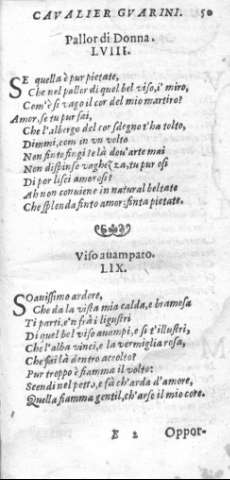 CAVALIER GVARINI. 50
Pallor di Donna.
LVIII.
SE quella è pur pietate,
Che nel pallor di quel bel viso, i' miro,
Com'è si vago il cor del mio martiro?
Amor, se tu pur sai,
Che l'albergo del cor sdegno t'ha tolto,
Dimmi, com in vn volto
Non finto fingi? e là dou'arte mai
Non dispinse vaghezza, tu pur osi
Di por lisci amorosi?
Ah non conuiene in natural beltate
Che splenda finto amor: finta pietate.
Viso auampato.
LIX.
SOauissimo ardore,
Che da la vista mia calda, e bramosa
Ti parti, e'n frà i ligustri
Di quel bel viso auampi, e sì t'illustri,
Che l'alba vinci, e la vermiglia rosa,
Che fai là dentro accolto?
Pur troppo è fiamma il volto:
Scendi nel petto, e fà ch'arda d'amore,
Quella fiamma gentil, ch'arse il mio core.
E 2 Oppor-